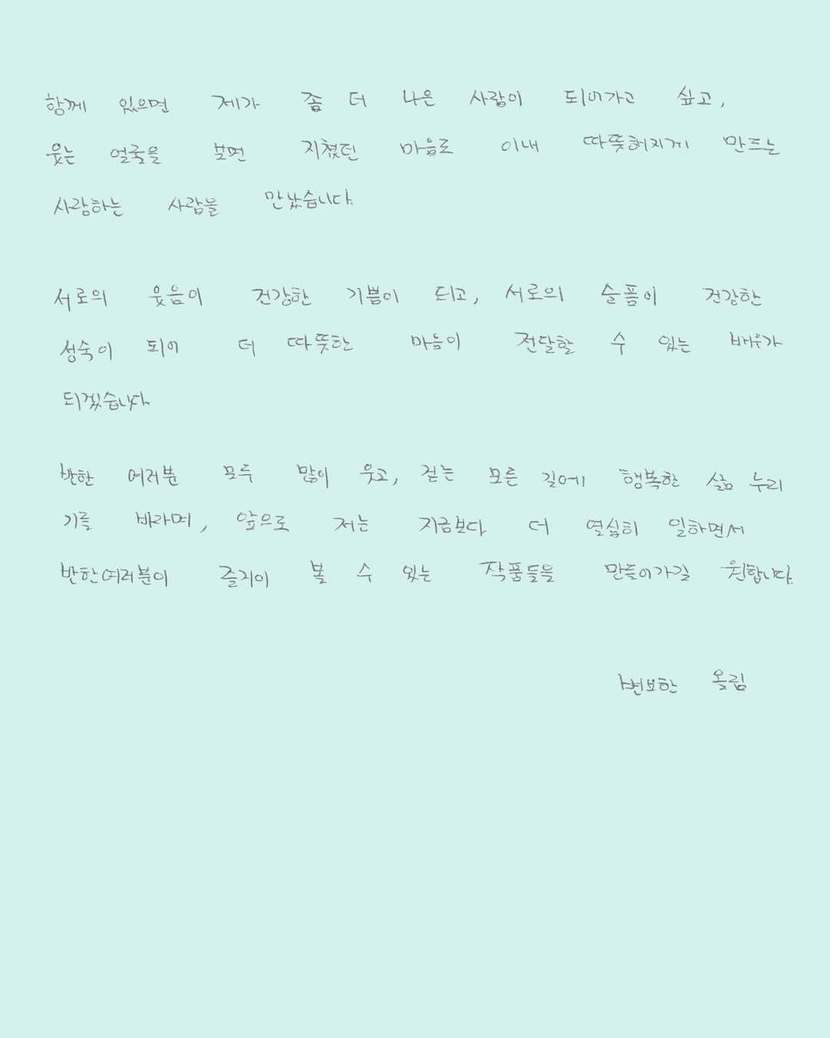 함께 있으면 제가 좀 더 나은 사람이 되어가고 싶고,
웃는 얼굴을 보면 지쳤던 마음도 이내 따뜻해지게 만드는
사랑하는 사람을 만났습니다.
서로의 웃음이 건강한 기쁨이 되고, 서로의 슬픔이 건강한
성숙이 되어 더 따뜻한 마음이 전달할 수 있는 배우가
되겠습니다.
반한 여러분 모두 많이 웃고, 걷는 모든 길에 행복한 삶 누리
기를 바라며, 앞으로 저는 지금보다 더 열심히 일하면서
반한여러분이 즐거이 볼 수 있는 작품들을 만들어가길 원합니다.
변보한 올림